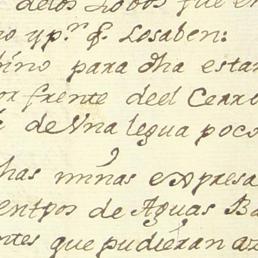 delos Lobos fue en
no yp.ʳ q̃. Losaben:
hino para dha estan
or frente deel Cerro
de Vna legua poco
has minas expresa
entos de Aguas Ba
ntes que pudieran